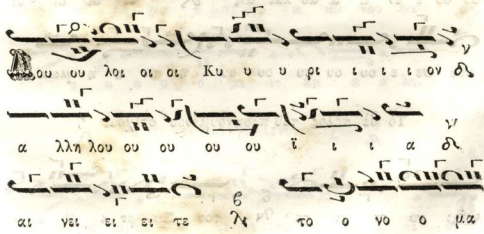 Δου ου λοι οι οι Κυ υ υ ρι ι ι ι ον
α λλη λου ου ου ου ου ϊ ι ι α
αι νει ει ει τε το ο νο ο μα